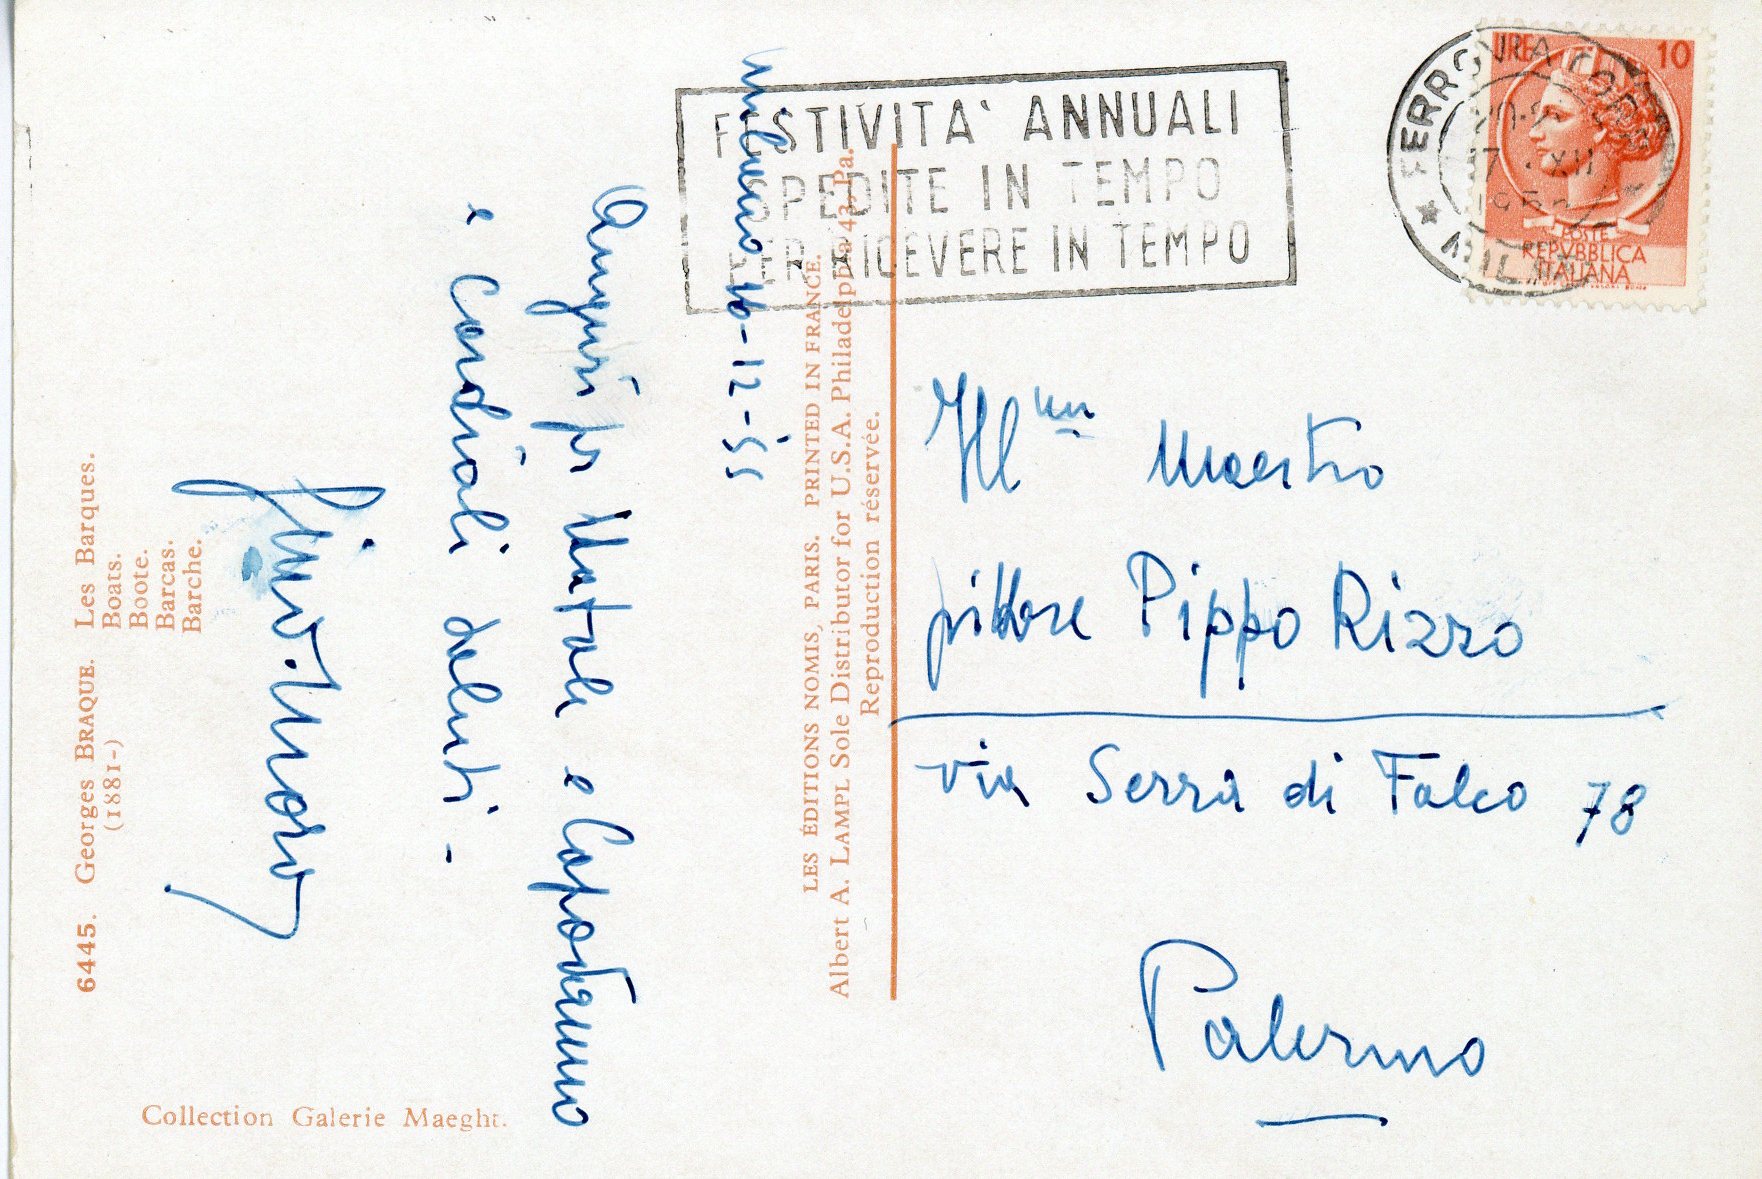 6445. Georges BRAQUE. Les Barques.
(1881-) Boats.
Boote.
Barcas.
Barche.
Collection Galerie Maeght.
Milano 16-12-55
Auguri per Natale e Capodanno
e cordiali saluti -
Gino Moro
LES ÉDITIONS NOMIS, PARIS. PRINTED IN FRANCE.
Albert A. LAMPL Sole Distributor for U.S.A. Philadelphia 43, Pa.
Reproduction réservée.
FESTIVITA' ANNUALI
SPEDITE IN TEMPO
PER RICEVERE IN TEMPO
FERROVIA
17 XII
MILANO
LIRE 10
POSTE
REPVBBLICA
ITALIANA
Ill mo Maestro
pittore Pippo Rizzo
via Serra di Falco 78
Palermo